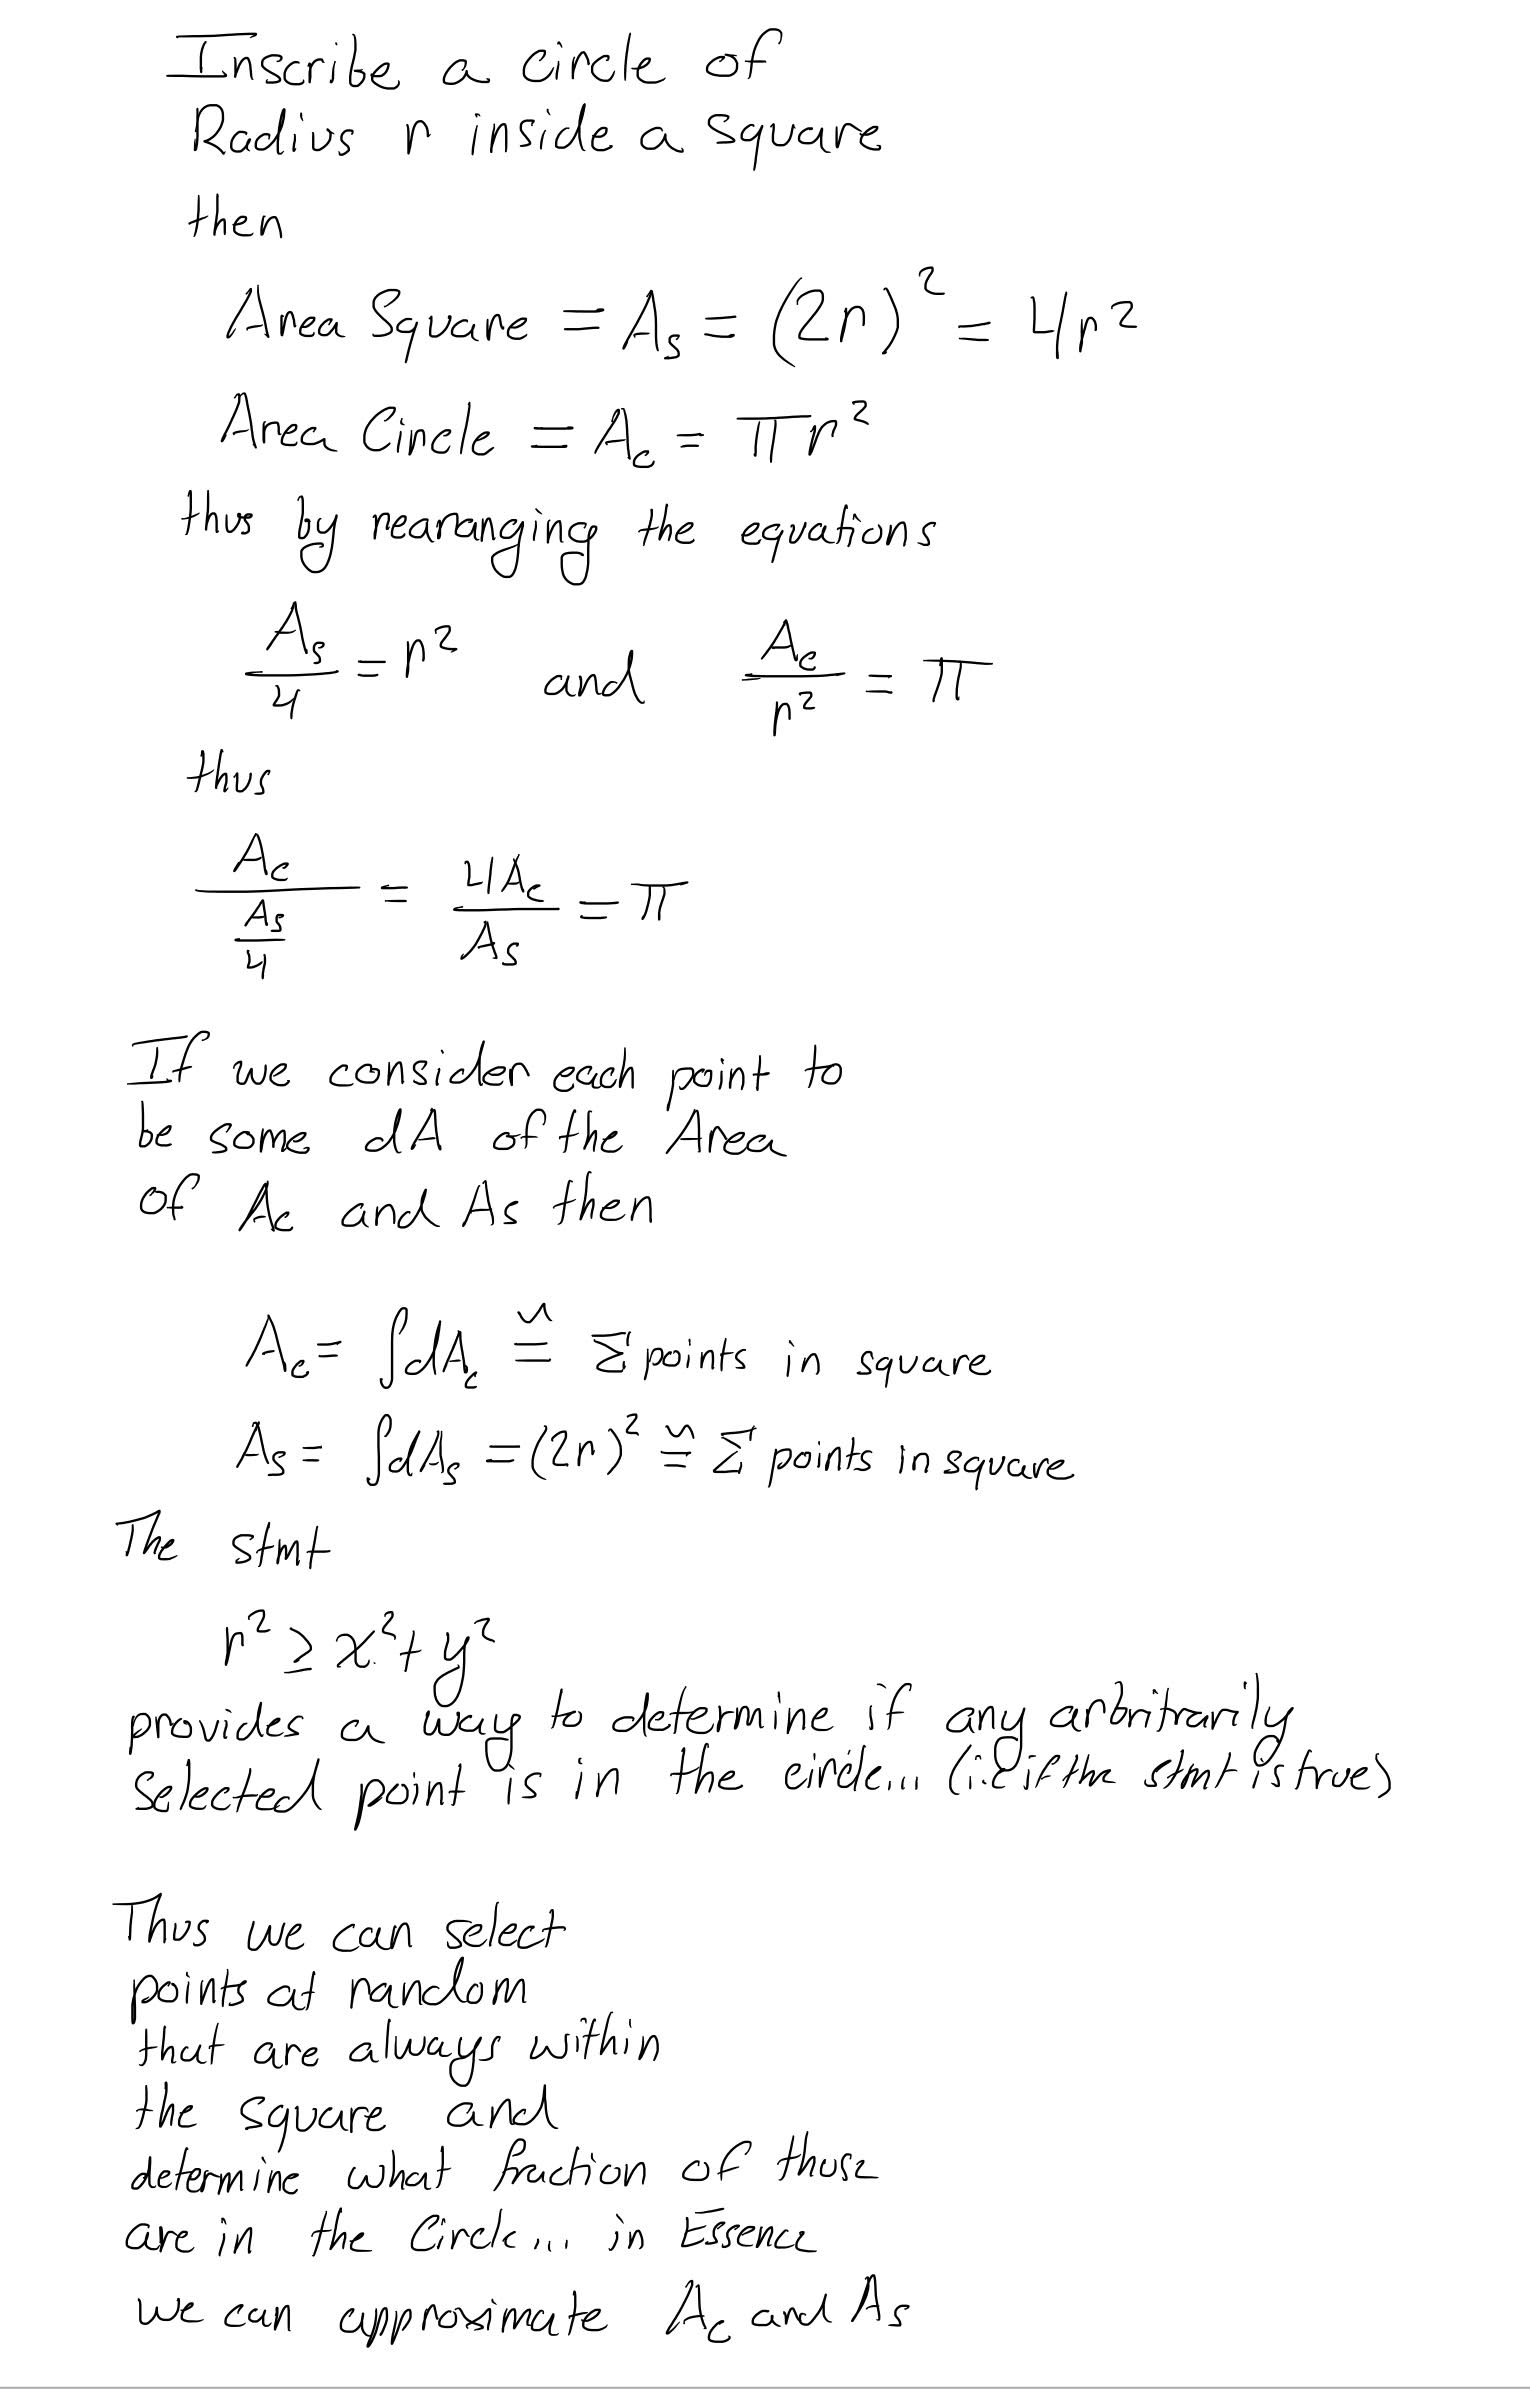 Inscribe a circle of
Radius r inside a square
then
Area Square = A_s = (2r)² = 4r²
Area Circle = A_c = πr²
thus by rearanging the equations
A_s/4 = r² and A_c/r² = π
thus
A_c/(A_s/4) = 4A_c/A_s = π
If we consider each point to
be some dA of the Area
of Ac and As then
A_c = ∫dA_c ≅ Σ points in square
A_s = ∫dA_s = (2r)² ≅ Σ points in square
The stmt
r² ≥ x² + y²
provides a way to determine if any arbritrarily
selected point is in the circle... (i.e if the stmt is true)
Thus we can select
points at random
that are always within
the square and
determine what fraction of those
are in the Circle... in Essence
we can approximate A_c and A_s